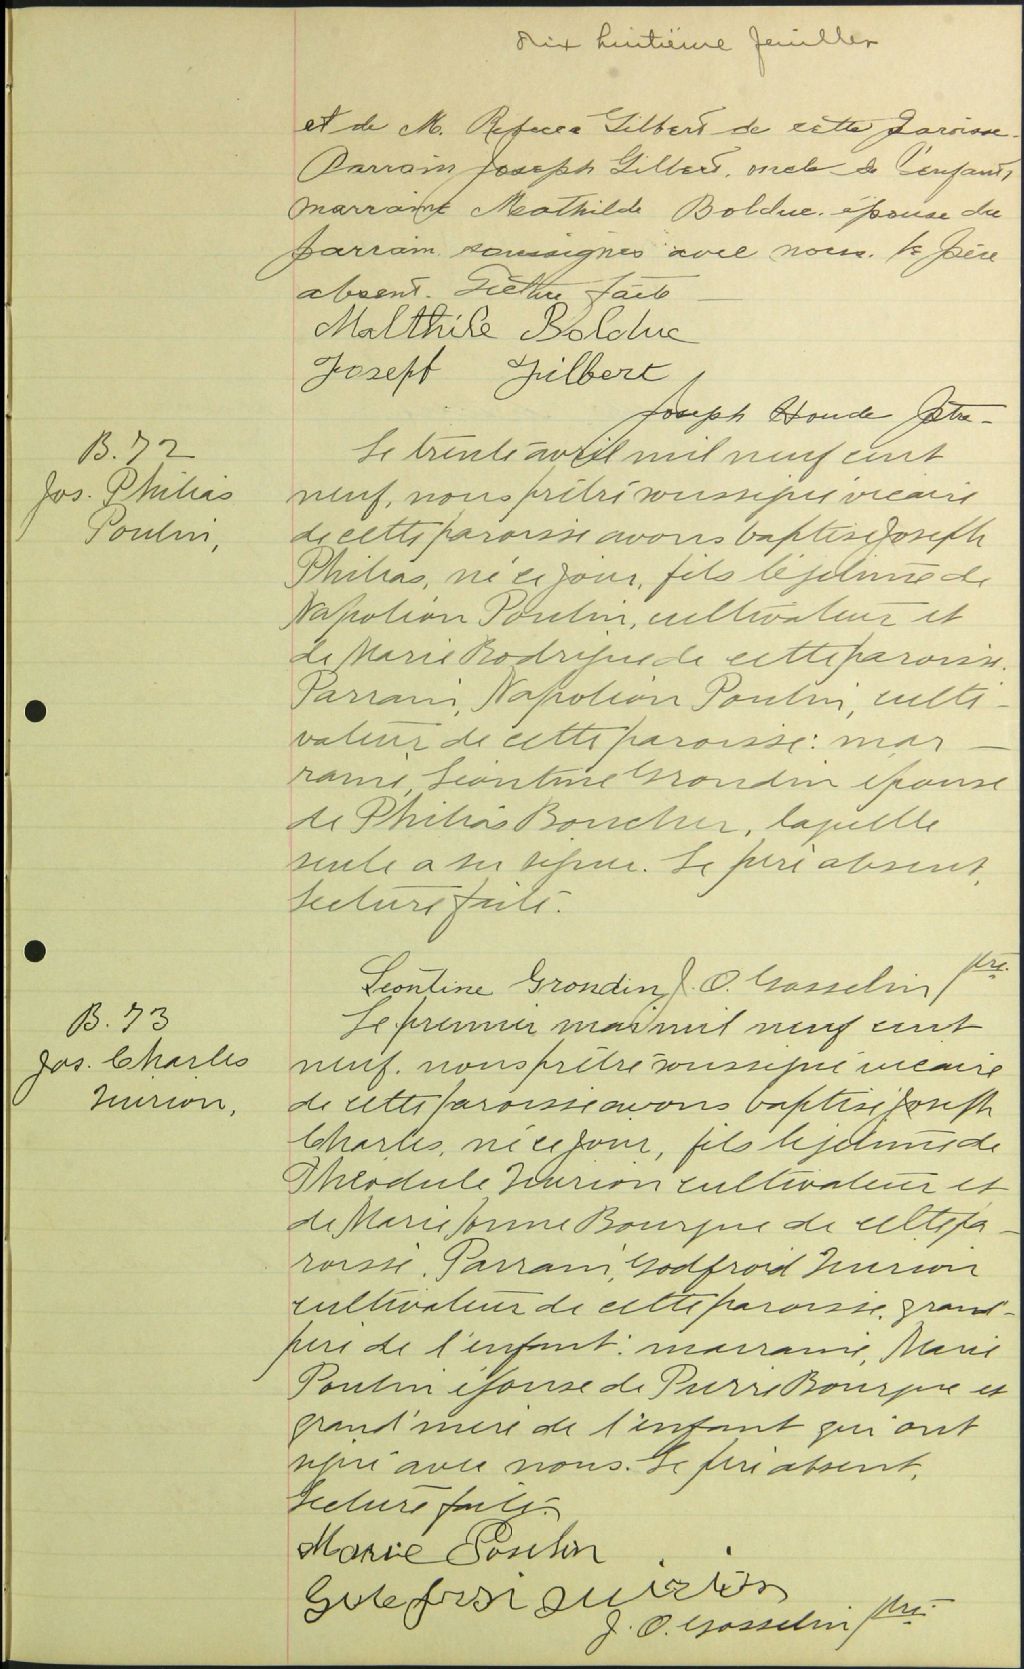 Dix huitième feuillet
et de M. Rebecca Gilbert de cette paroisse.
Parrain Joseph Gilbert. oncle de l'enfant,
marraine Mathilde Bolduc. épouse du
parrain soussignés avec nous. le père
absent. Lecture faite
Malthile Bolduc
Josepf Gilbert
Joseph Houde Ptre
B. 72
Jos. Philias
Poulin,
Le trente avril mil neuf cent
neuf, nous prêtre soussigné vicaire
de cette paroisse avons baptisé Joseph
Philias, né ce jour, fils légitime de
Napoléon Poulin, cultivateur et
de Marie Rodrigue de cette paroisse.
Parrain, Napoléon Poulin, culti-
vateur de cette paroisse: mar-
raine, Léontine Grondin épouse
de Philias Boucher, laquelle
seule a su signer. Le père absent,
Lecture faite.
Leontine Grondin J. O. Gosselin ptre.
B. 73
Jos. Charles
Quirion,
Le premier mai mil neuf cent
neuf. nous prêtre soussigné vicaire
de cette paroisse avons baptisé Joseph
Charles, né ce jour, fils légitime de
Théodule Quirion cultivateur et
de Marie Anne Bourque de cette pa-
roisse. Parrain, Godfroid Quirion
cultivateur de cette paroisse, grand-
père de l'enfant: marraine, Marie
Poulin épouse de Pierre Bourque et
grand'mère de l'enfant qui ont
signé avec nous. Le père absent.
Lecture faite.
Marie Poulin
quirion
J. O. Gosselin ptre.